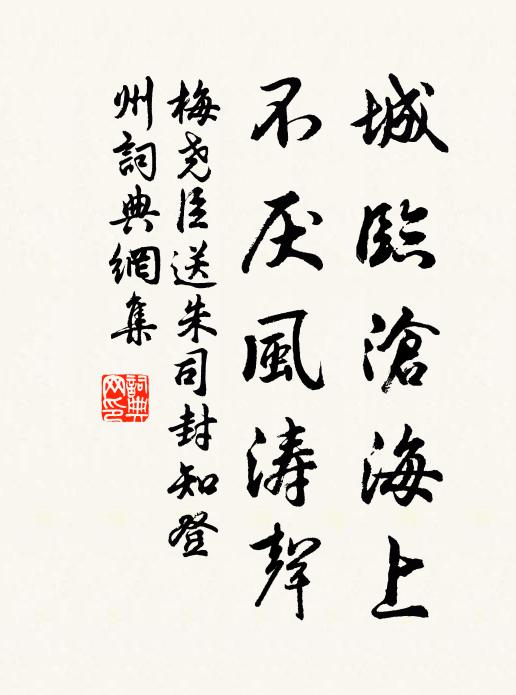 城臨滄海上
不厌風涛聲
梅尧臣送朱司封知登
州詞典網集
詞典
网印